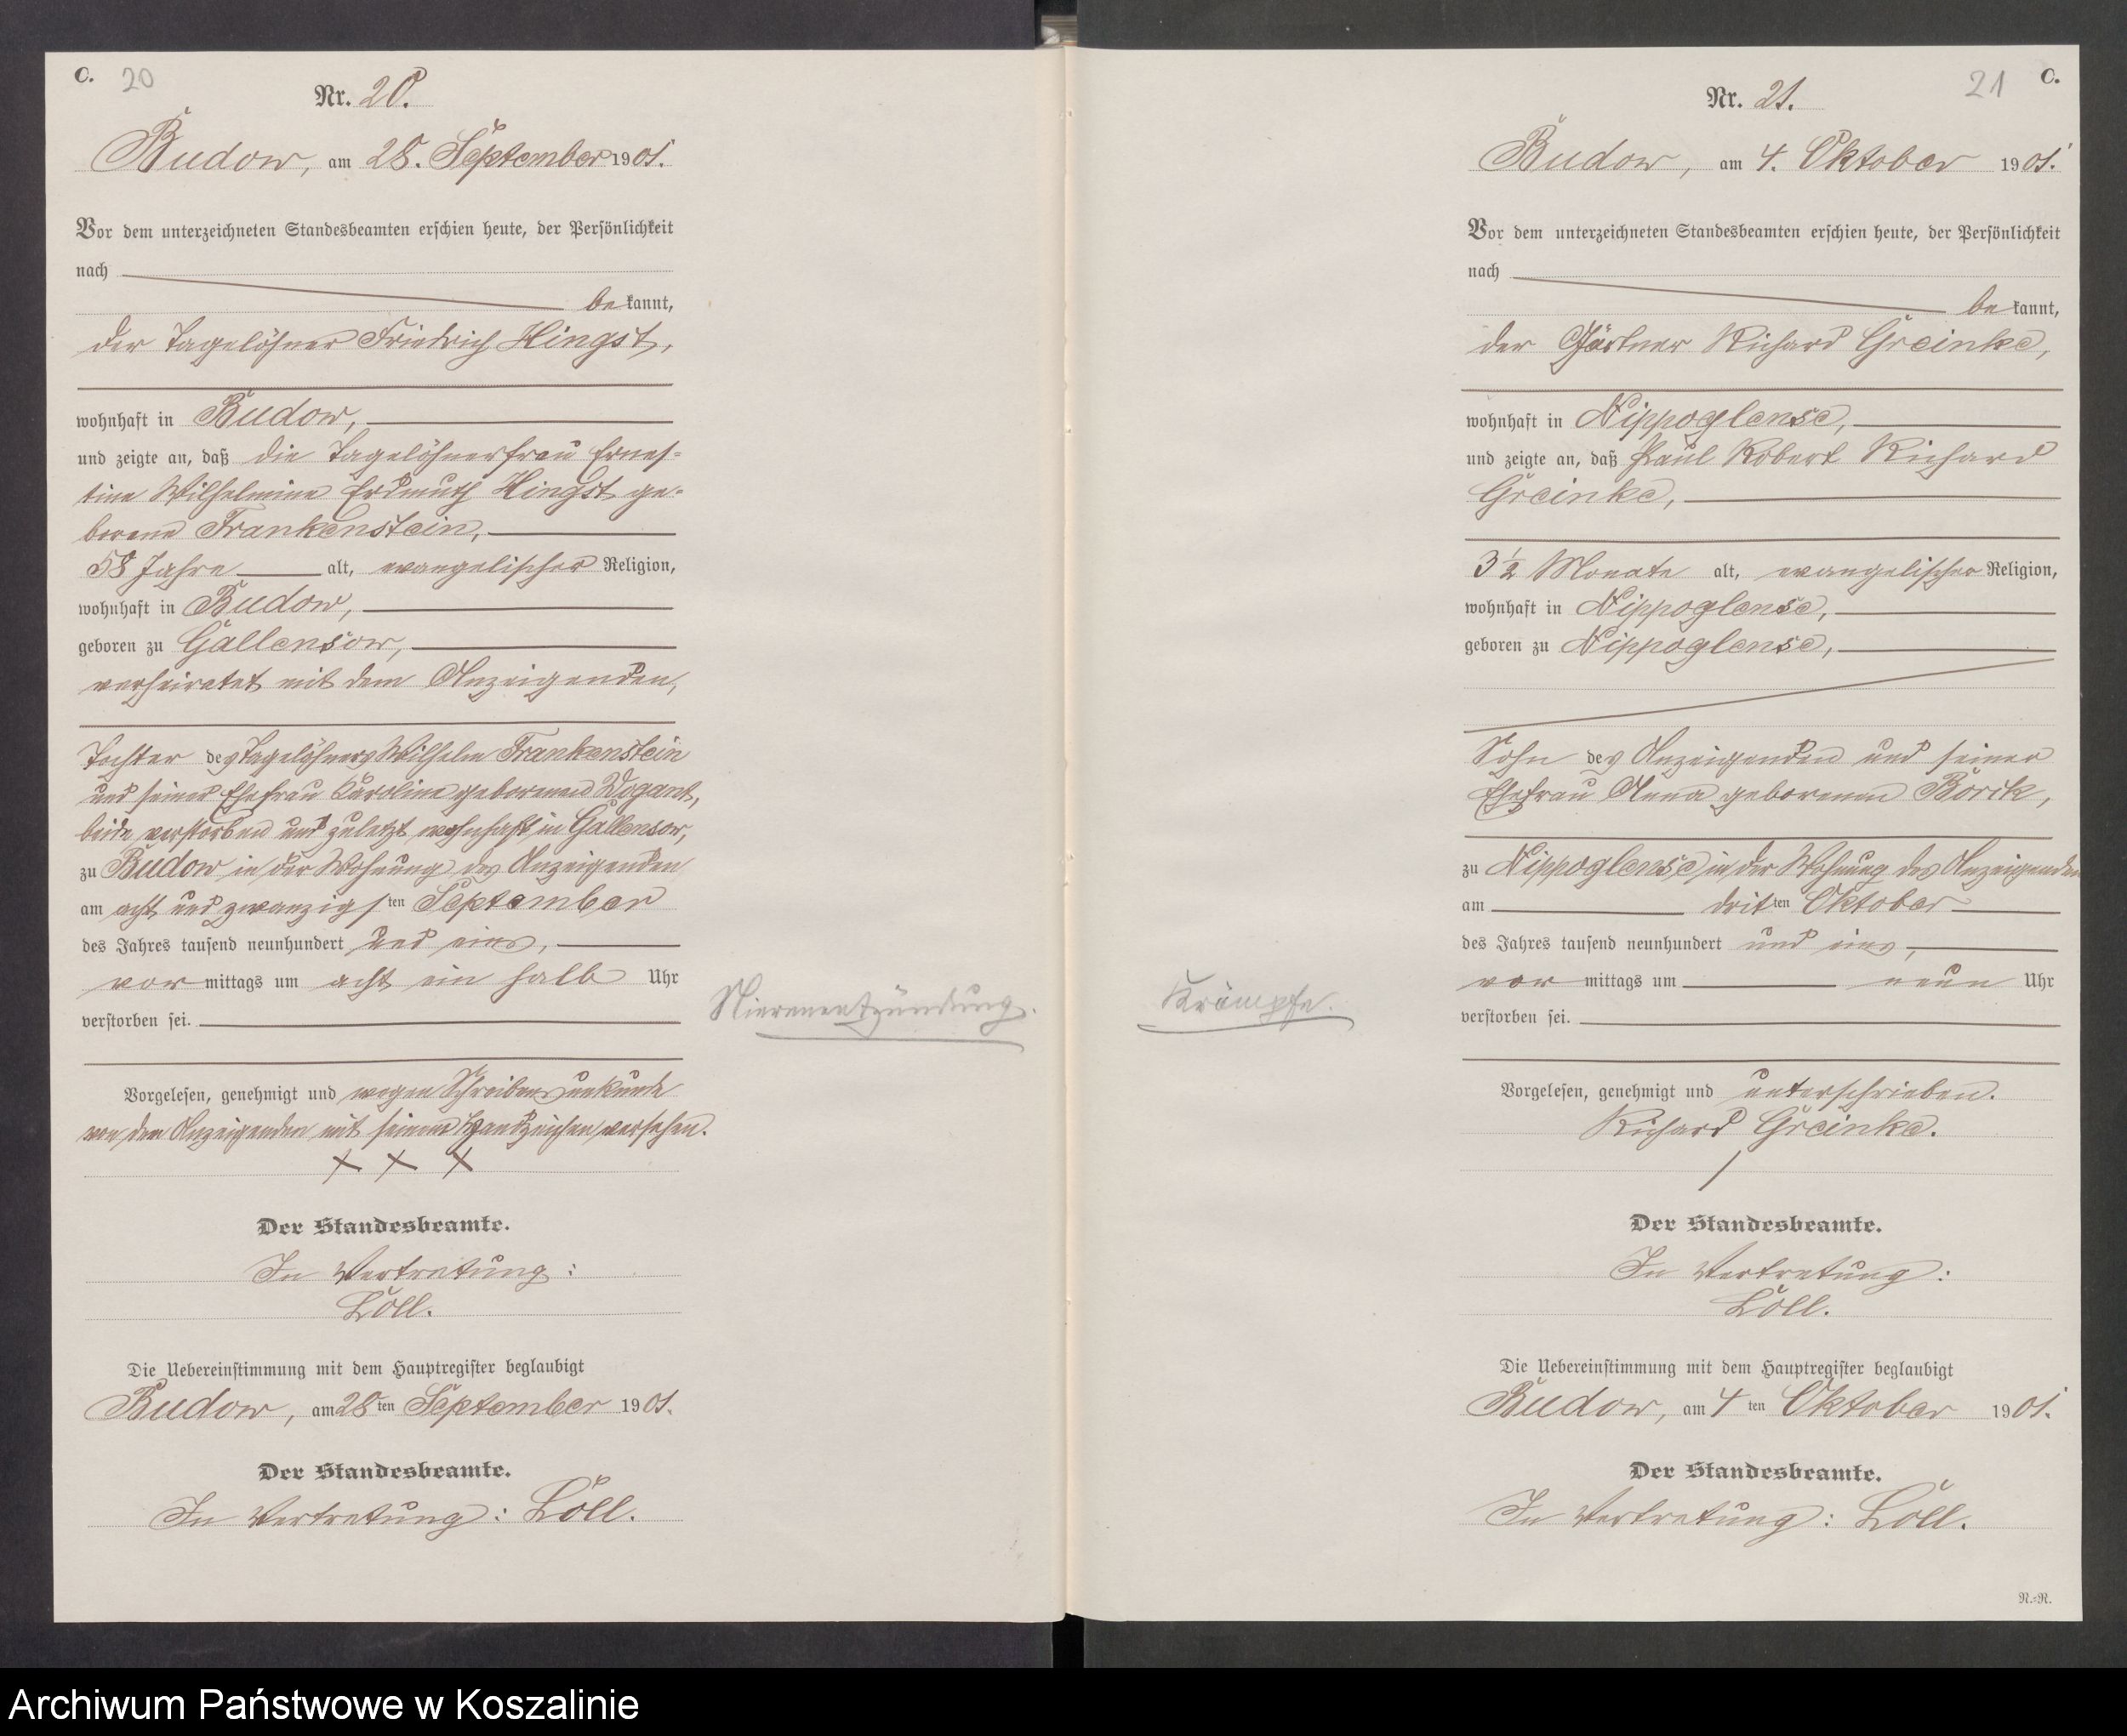 C. 20
Nr. 20.
Budow, am 28. September 1901.
Vor dem unterzeichneten Standesbeamten erschien heute, der Persönlichkeit
nach
bekannt,
der Tagelöhner Friedrich Hingst,
wohnhaft in Budow,
und zeigte an, daß die Tagelöhnerfrau Ernes-
tine Wilhelmine Erdmuth Hingst ge-
borene Frankenstein,
58 Jahre alt, evangelischer Religion,
wohnhaft in Budow,
geboren zu Gallensow,
verheiratet mit dem Anzeigenden,
Tochter des Tagelöhners Wilhelm Frankenstein
und seiner Ehefrau Caroline geborenen Wogant,
beide verstorben und zuletzt wohnhaft in Gallensow,
zu Budow in der Wohnung des Anzeigenden
am acht und zwanzigsten September
des Jahres tausend neunhundert und eins,
vormittags um acht ein halb Uhr
verstorben sei.
Nierenentzündung.
Vorgelesen, genehmigt und wegen Schreibensunkunde
von dem Anzeigenden mit seinem Handzeichen versehen.
X X X
Der Standesbeamte.
In Vertretung:
Löll.
Die Uebereinstimmung mit dem Hauptregister beglaubigt
Budow, am 28ten September 1901.
Der Standesbeamte.
In Vertretung: Löll.
21 C.
Nr. 21.
Budow, am 4. Oktober 1901.
Vor dem unterzeichneten Standesbeamten erschien heute, der Persönlichkeit
nach
bekannt,
der Gärtner Richard Greinke,
wohnhaft in Nippoglense,
und zeigte an, daß Paul Robert Richard
Greinke,
3 1/2 Monate alt, evangelischer Religion,
wohnhaft in Nippoglense,
geboren zu Nippoglense,
Sohn des Anzeigenden und seiner
Ehefrau Anna geborenen Börik,
zu Nippoglense in der Wohnung des Anzeigenden
am dritten Oktober
des Jahres tausend neunhundert und eins,
vormittags um neun Uhr
verstorben sei.
Krämpfe.
Vorgelesen, genehmigt und unterschrieben.
Richard Greinke.
Der Standesbeamte.
In Vertretung:
Löll.
Die Uebereinstimmung mit dem Hauptregister beglaubigt
Budow, am 4ten Oktober 1901.
Der Standesbeamte.
In Vertretung: Löll.
N.-N.
Archiwum Państwowe w Koszalinie